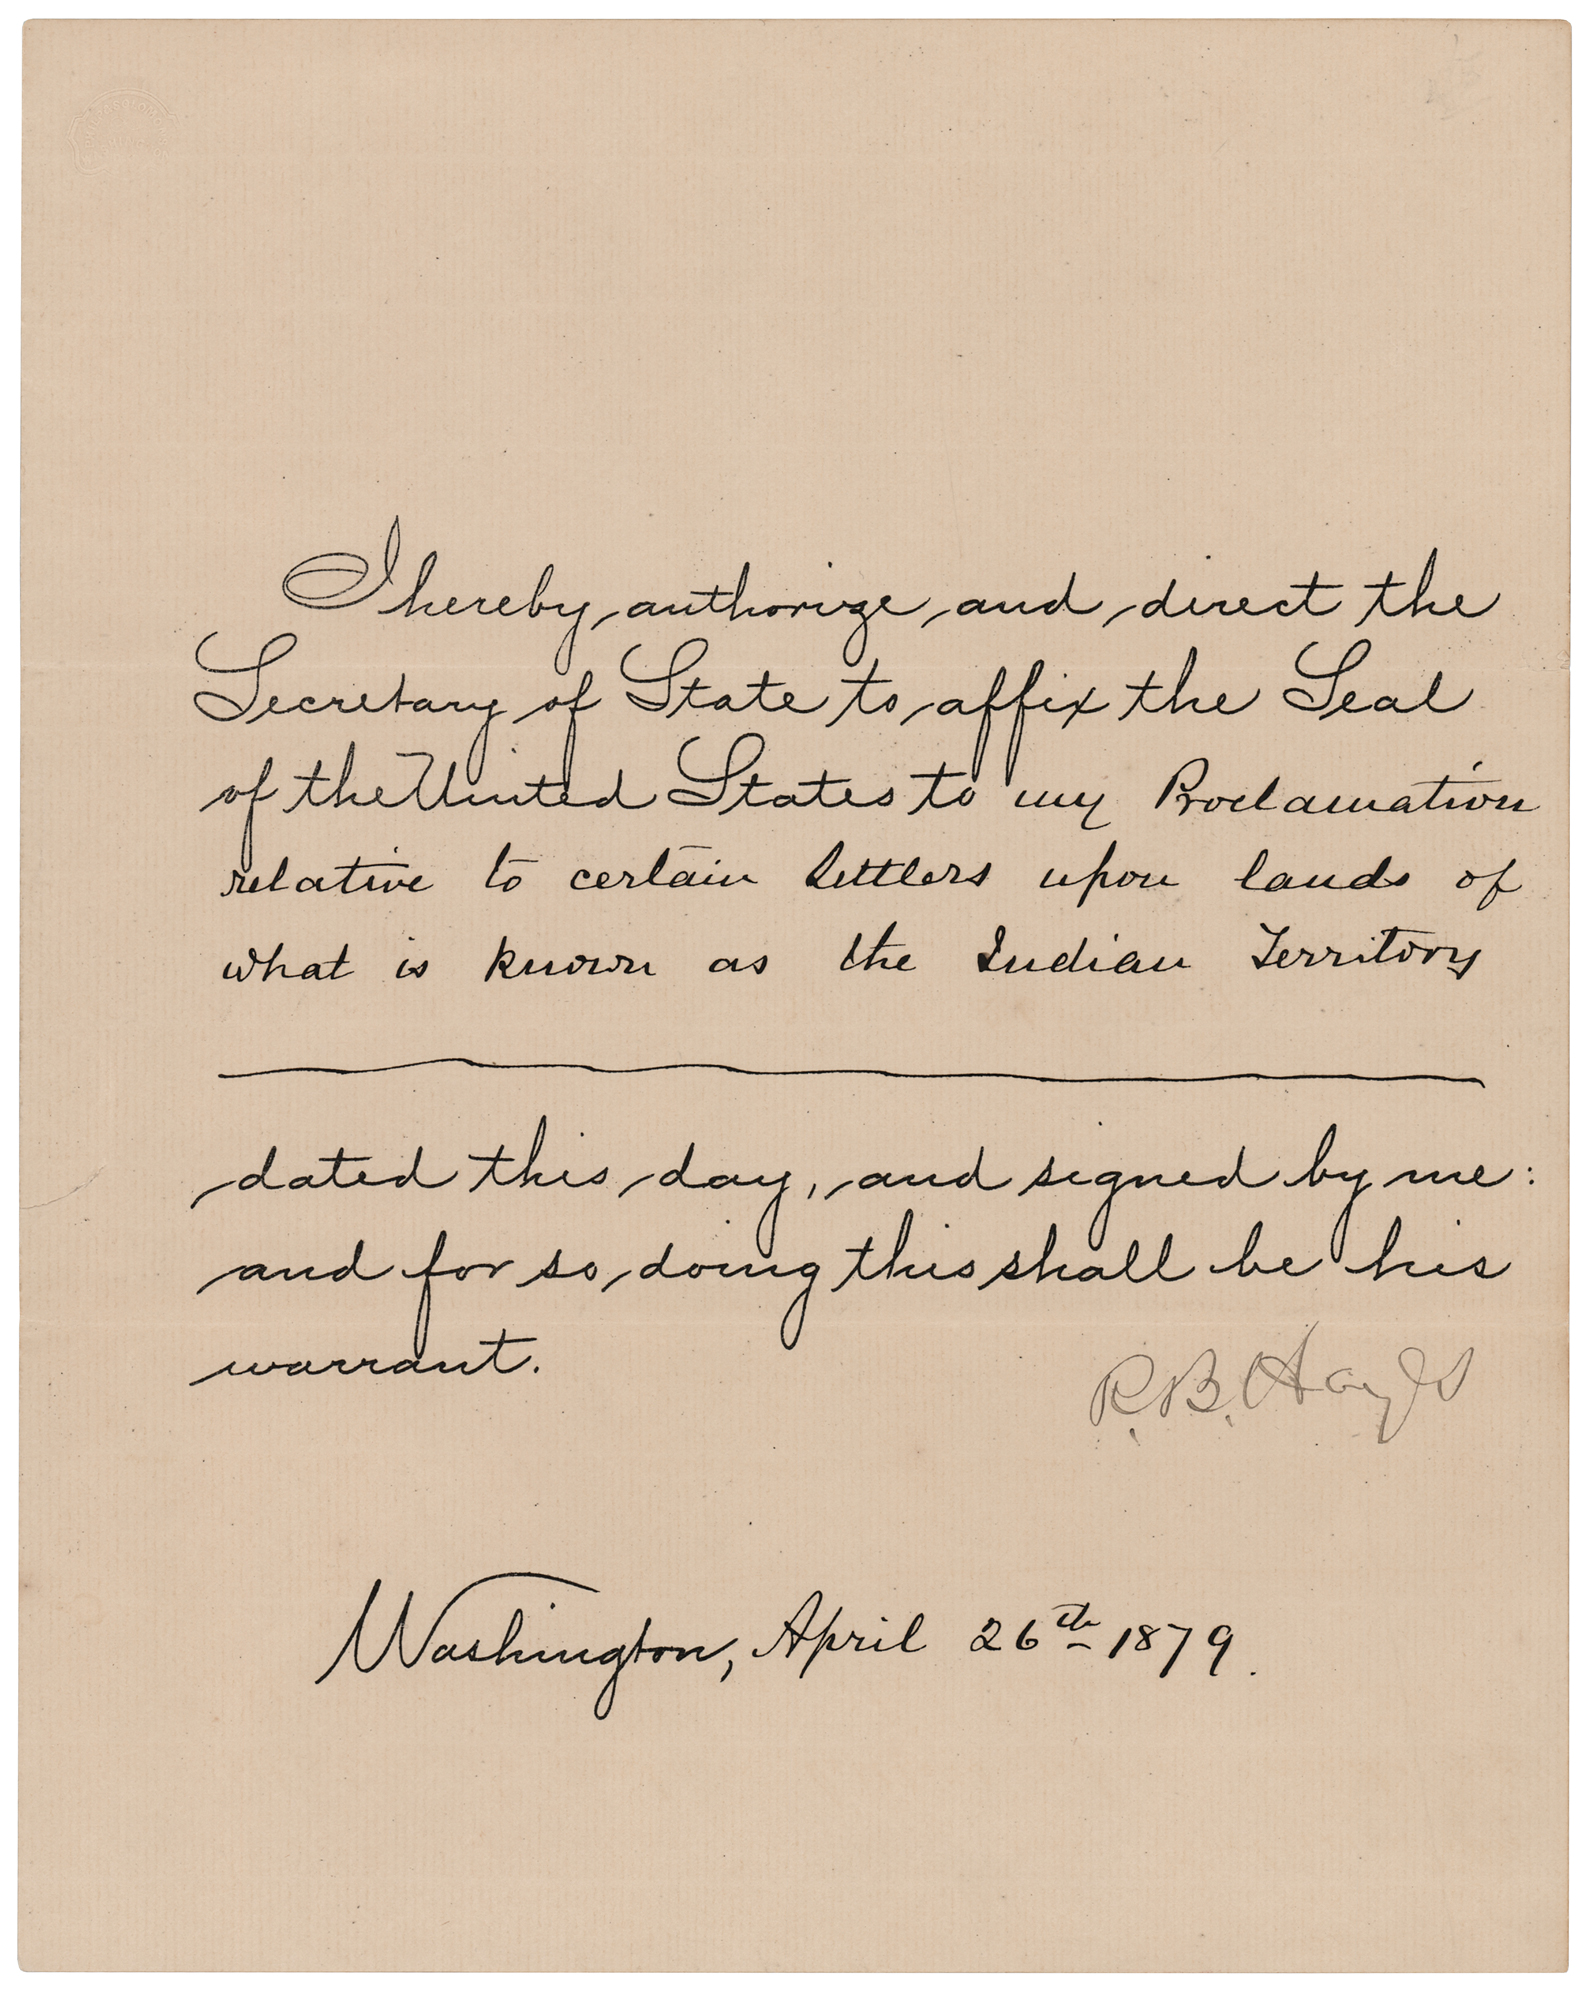 I hereby authorize and direct the
Secretary of State to affix the Seal
of the United States to my Proclamation
relative to certain settlers upon lands of
what is known as the Indian Territory
dated this day, and signed by me:
and for so doing this shall be his
warrant.
R. B. Hayes
Washington, April 26th 1879.